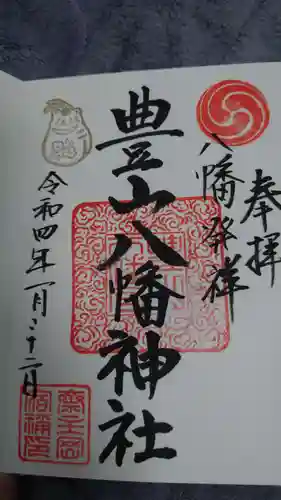 奉拝
八幡発祥
豊山八幡神社
令和四年一月二十二日